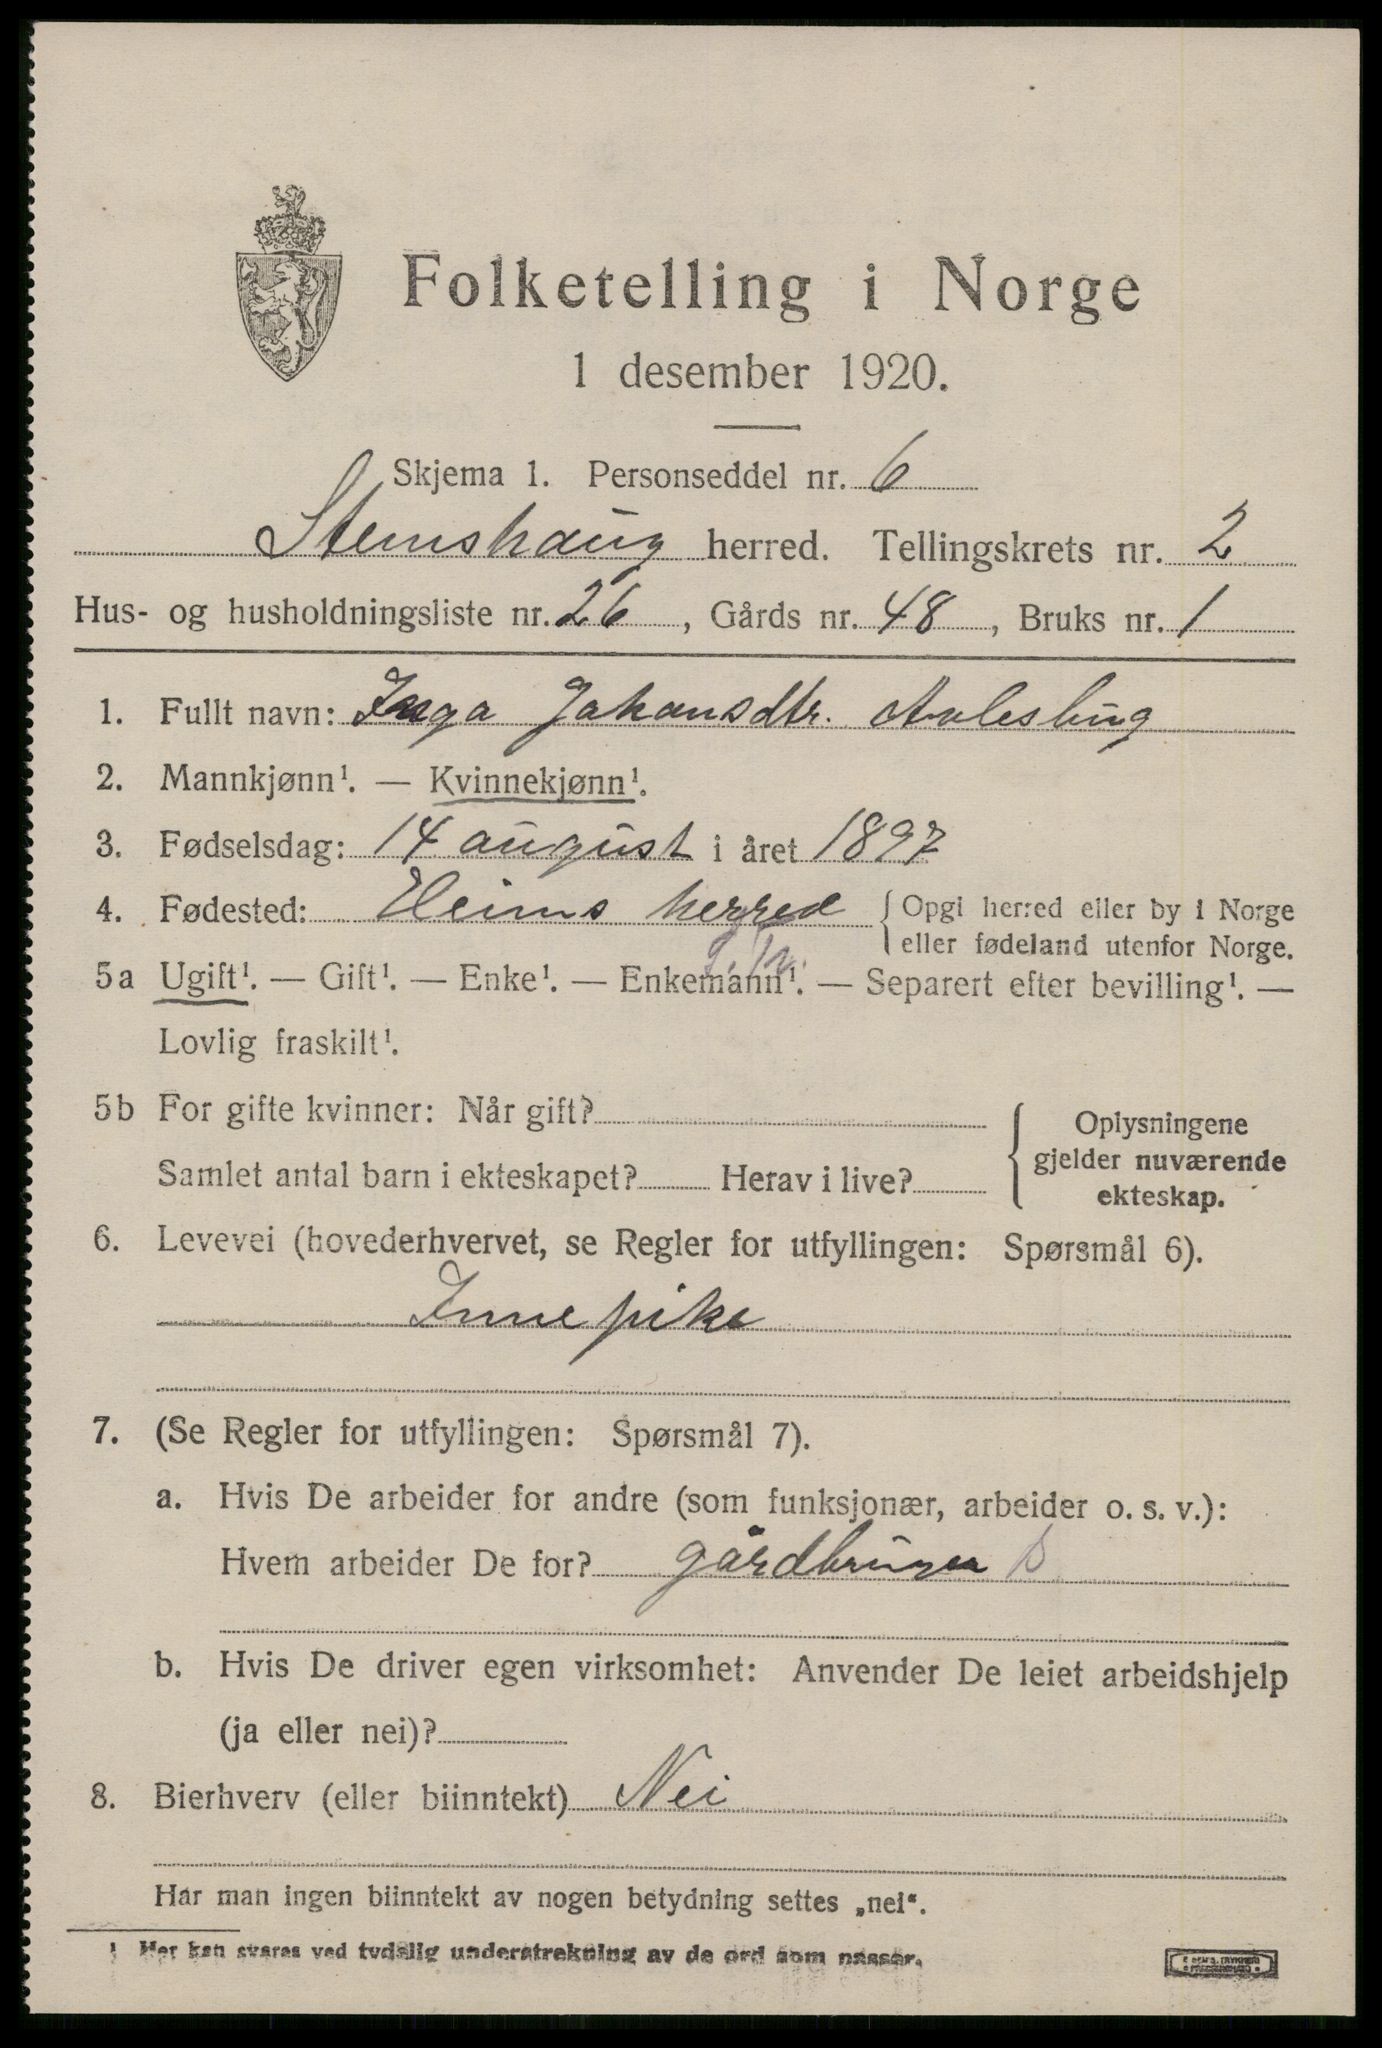 Folketelling i Norge
1 desember 1920.
Skjema 1. Personseddel nr. 6
Stemshaug herred. Tellingskrets nr. 2
Hus- og husholdningsliste nr. 26, Gårds nr. 48, Bruks nr. 1
1. Fullt navn: Inga Johansdtr.
2. Mannkjønn¹. — Kvinnekjønn¹.
3. Fødselsdag: 14 august i året 1897
4. Fødested: Heims herred { Opgi herred eller by i Norge
eller fødeland utenfor Norge.
5a Ugift¹. — Gift¹. — Enke¹. — Enkemann¹. — Separert efter bevilling¹. —
Lovlig fraskilt¹.
5b For gifte kvinner: Når gift?
Samlet antal barn i ekteskapet? Herav i live?
Oplysningene
gjelder nuværende
ekteskap.
6. Levevei (hovederhvervet, se Regler for utfyllingen: Spørsmål 6).
Innepike
7. (Se Regler for utfyllingen: Spørsmål 7).
a. Hvis De arbeider for andre (som funksjonær, arbeider o. s. v.):
Hvem arbeider De for? gårdbruger
b. Hvis De driver egen virksomhet: Anvender De leiet arbeidshjelp
(ja eller nei)?
8. Bierhverv (eller biinntekt) Nei
Har man ingen biinntekt av nogen betydning settes „nei“.
1 Her kan svares ved tydelig understrekning av de ord som passer.